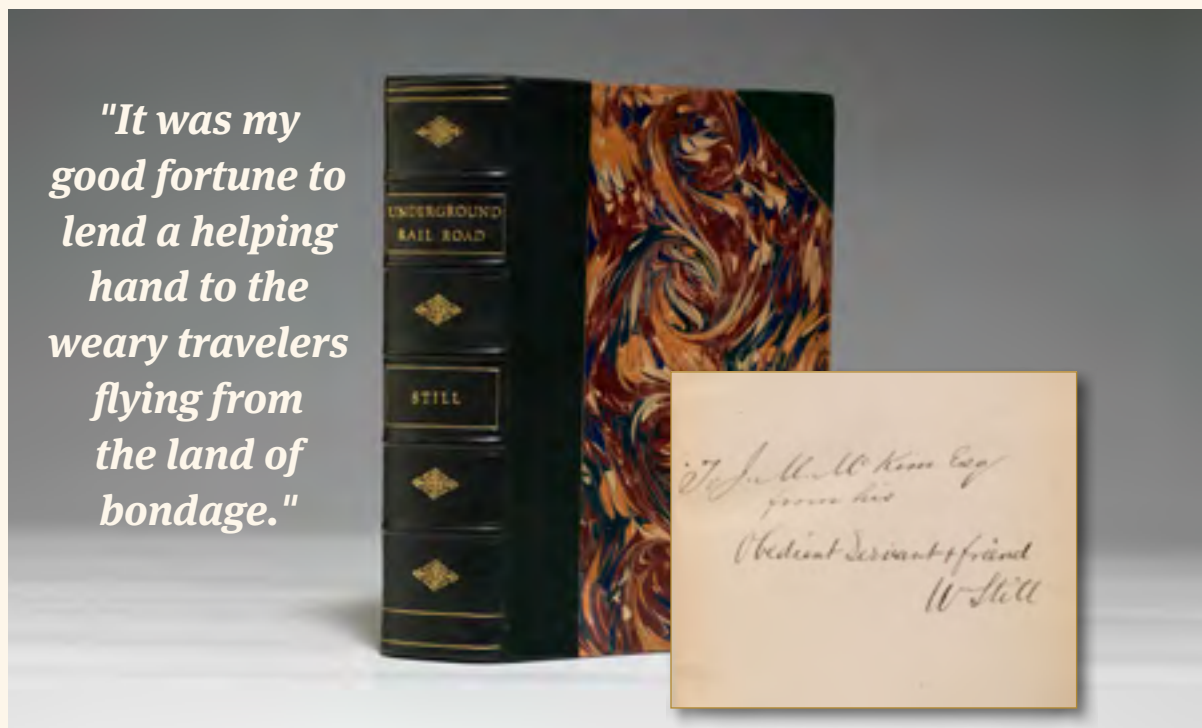 "It was my
good fortune to
lend a helping
hand to the
weary travelers
flying from
the land of
bondage."
UNDERGROUND
RAIL ROAD
STILL
To J. M. McKim Esq
from his
Obedient Servant & friend
W Still